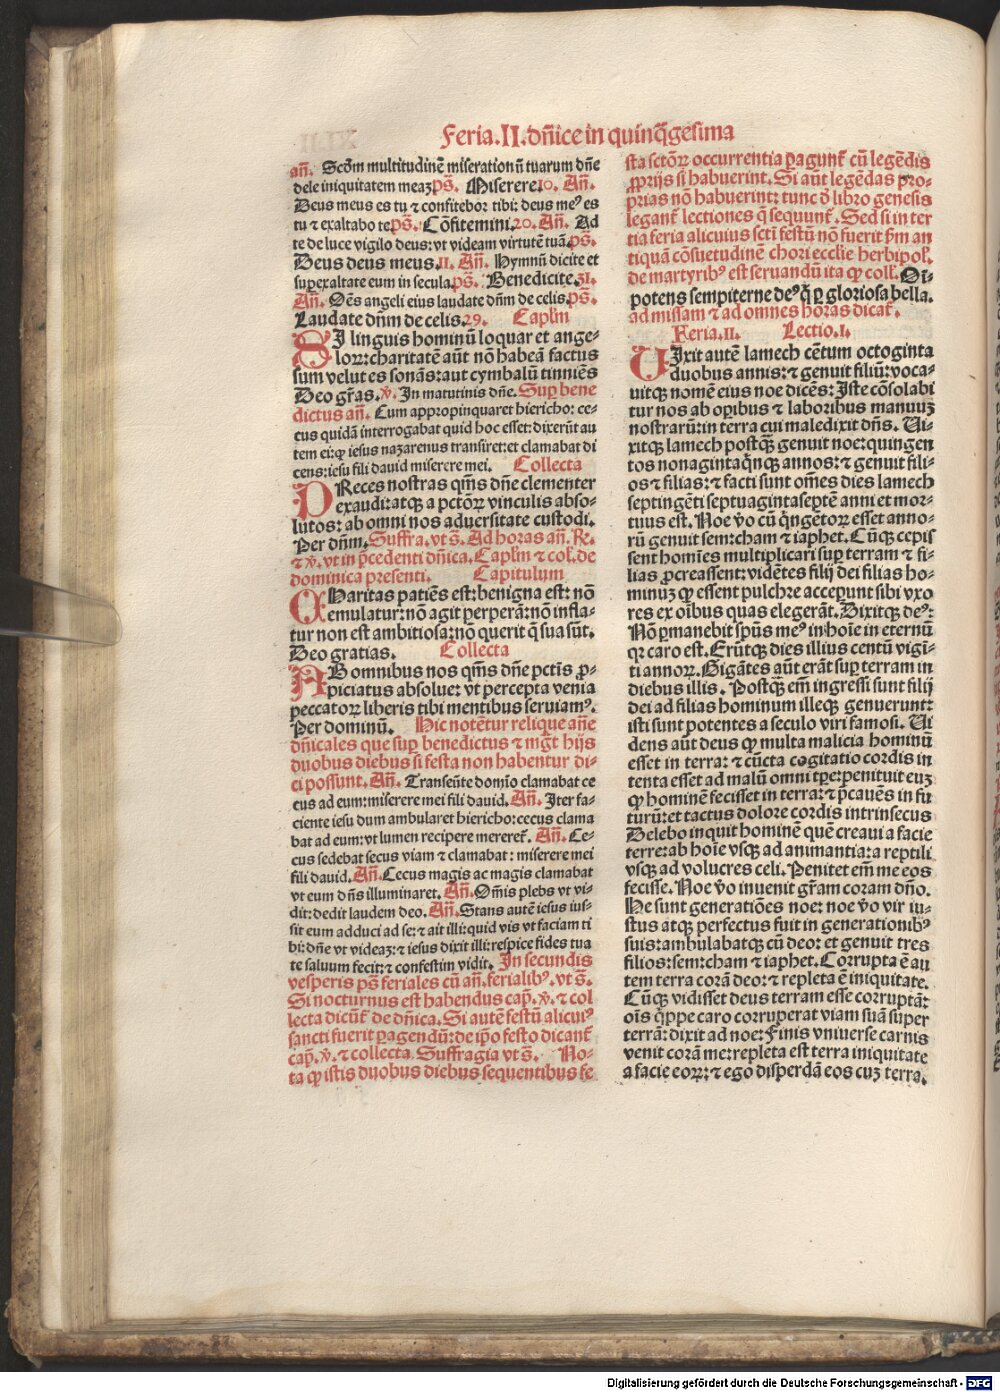 Feria.II.dñice in quinq̃gesima
añ. Scd̃m multitudinẽ miserationũ tuarum dñe
dele iniquitatem meaꝫ pš. Miserere.10. Añ.
Deus meus es tu ⁊ confitebor tibi: deus meꝰ es
tu ⁊ exaltabo te pš. Cõfitemini.20. Añ. Ad
te de luce vigilo deus: vt videam virtutẽ tuã. pš.
Deus deus meus.11. Añ. Hymnũ dicite et
suꝑexaltate eum in secula. pš. Benedicite.31.
Añ. Oẽs angeli eius laudate dñm de celis. pš.
Laudate dñm de celis.29. Caplm̃
SI linguis hominũ loquar et ange-
loꝝ: charitatẽ aũt nõ habeã factus
sum velut es sonãs: aut cymbalũ tinniẽs
Deo gr̃as. ℣. In matutinis dñe. Suꝑ bene
dictus añ. Cum appropinquaret hiericho: ce-
cus quidã interrogabat quid hoc esset: dixerũt au
tem ei: ꝙ iesus nazarenus transiret: et clamabat di
cens: iesu fili dauid miserere mei. Collecta
PReces nostras q̃ms dñe clementer
exaudi: atqꝫ a pctõꝝ vinculis abso-
lutos: ab omni nos aduersitate custodi.
Per dñm. Suffra. vt š. Ad horas añ. ℞.
⁊ ℣. vt in p̃cedenti dñica. Caplm̃ ⁊ col̃. de
dominica presenti. Capitulum
CHaritas patiẽs est: benigna est: nõ
emulatur: nõ agit perperã: nõ infla-
tur non est ambitiosa: nõ querit q̃ sua sũt.
Deo gratias. Collecta
AB omnibus nos q̃ms dñe pctĩs ꝓ-
piciatus absolue: vt ꝑcepta venia
peccatoꝝ liberis tibi mentibus seruiamꝰ.
Per dominũ. Hic notẽtur relique añe
dñicales que suꝑ benedictus ⁊ mg̃t hijs
duobus diebus si festa non habentur di-
ci possunt. Añ. Transeũte domĩo clamabat ce
cus ad eum: miserere mei fili dauid. Añ. Iter fa-
ciente iesu dum ambularet hiericho: cecus clama
bat ad eum: vt lumen recipere mereret̃. Añ. Ce-
cus sedebat secus viam ⁊ clamabat: miserere mei
fili dauid. Añ. Cecus magis ac magis clamabat
vt eum dñs illuminaret. Añ. Om̃is plebs vt vi-
dit: dedit laudem deo. Añ. Stans autẽ iesus ius-
sit eum adduci ad se: ⁊ ait illi: quid vis vt faciam ti
bi: dñe vt videaꝫ: ⁊ iesus dixit illi: respice fides tua
te saluum fecit: ⁊ confestim vidit. In secundis
vesperis pš feriales cũ añ. ferialibꝰ. vt š.
Si nocturnus est habendus cap̃. ℣. ⁊ col
lecta dicũt̃ de dñica. Si autẽ festũ alicuiꝰ
sancti fuerit ꝑagendũ: de ip̃o festo dicant̃
cap̃. ℣. ⁊ collecta. Suffragia vt š. No-
ta ꝙ istis duobus diebus sequentibus fe
sta sctõꝝ occurrentia ꝑagunt̃ cũ legẽdis
ꝓprijs si habuerint. Si aũt legẽdas pro-
prias nõ habuerint: tunc ð libro genesis
legant̃ lectiones q̃ sequunt̃. Sed si in ter
tia feria alicuius scti festũ nõ fuerit ꝓm an
tiquã cõsuetudinẽ chori eccl̃ie herbipol̃.
de martyribꝰ est seruandũ ita ꝙ coll̃. Oĩ-
potens sempiterne deꝰ q̃ ꝑ gloriosa bella.
ad missam ⁊ ad omnes horas dicat̃.
Feria.II. Lectio.I.
VIxit autẽ lamech cẽtum octoginta
duobus annis: ⁊ genuit filiũ: voca-
uitqꝫ nomẽ eius noe dicẽs: Iste cõsolabi
tur nos ab oꝑibus ⁊ laboribus manuuꝫ
nostrarũ: in terra cui maledixit dñs. Ui-
xitqꝫ lamech postqꝫ̃ genuit noe: quingen
tos nonagintaq̃nqꝫ annos: ⁊ genuit fili-
os ⁊ filias: ⁊ facti sunt om̃es dies lamech
septingẽti septuagintaseptẽ anni et mor-
tuus est. Noe v̊o cũ q̃ngẽtoꝝ esset anno-
rũ genuit sem: cham ⁊ iaphet. Cũqꝫ cepis
sent homĩes multiplicari suꝑ terram ⁊ fi-
lias ꝓcreassent: vidẽtes filij dei filias ho-
minuꝫ ꝙ essent pulchre acceꝑunt sibi vxo
res ex oĩbus quas elegerãt. Dixitqꝫ deꝰ:
Nõ ꝑmanebit spũs meꝰ in hoĩe in eternũ
qꝛ caro est. Erũtqꝫ dies illius centũ vigĩ-
ti annoꝝ. Gigãtes aũt erãt suꝑ terram in
diebus illis. Postqꝫ̃ em̃ ingressi sunt filij
dei ad filias hominum illeqꝫ genuerunt:
isti sunt potentes a seculo viri famosi. Ui
dens aũt deus ꝙ multa malicia hominũ
esset in terra: ⁊ cũcta cogitatio cordis in
tenta esset ad malũ omni tꝑe: penituit euꝫ
ꝙ hominẽ fecisset in terra: ⁊ p̃cauẽs in fu
turũ: et tactus dolore cordis intrinsecus
Delebo inquit hominẽ quẽ creaui a facie
terre: ab hoĩe vsqꝫ ad animantia: a reptili
vsqꝫ ad volucres celi. Penitet em̃ me eos
fecisse. Noe v̊o inuenit gr̃am coram dño.
He sunt generatiões noe: noe v̊o vir iu-
stus atqꝫ perfectus fuit in generationibꝰ
suis: ambulabatqꝫ cũ deo: et genuit tres
filios: sem: cham ⁊ iaphet. Corrupta ẽ au
tem terra corã deo: ⁊ repleta ẽ iniquitate.
Cũqꝫ vidisset deus terram esse corruptã:
oĩs q̃ppe caro corruperat viam suã super
terrã: dixit ad noe: Finis vniuerse carnis
venit corã me: repleta est terra iniquitate
a facie eoꝝ: ⁊ ego disperdã eos cuꝫ terra.
Digitalisierung gefördert durch die Deutsche Forschungsgemeinschaft - DFG